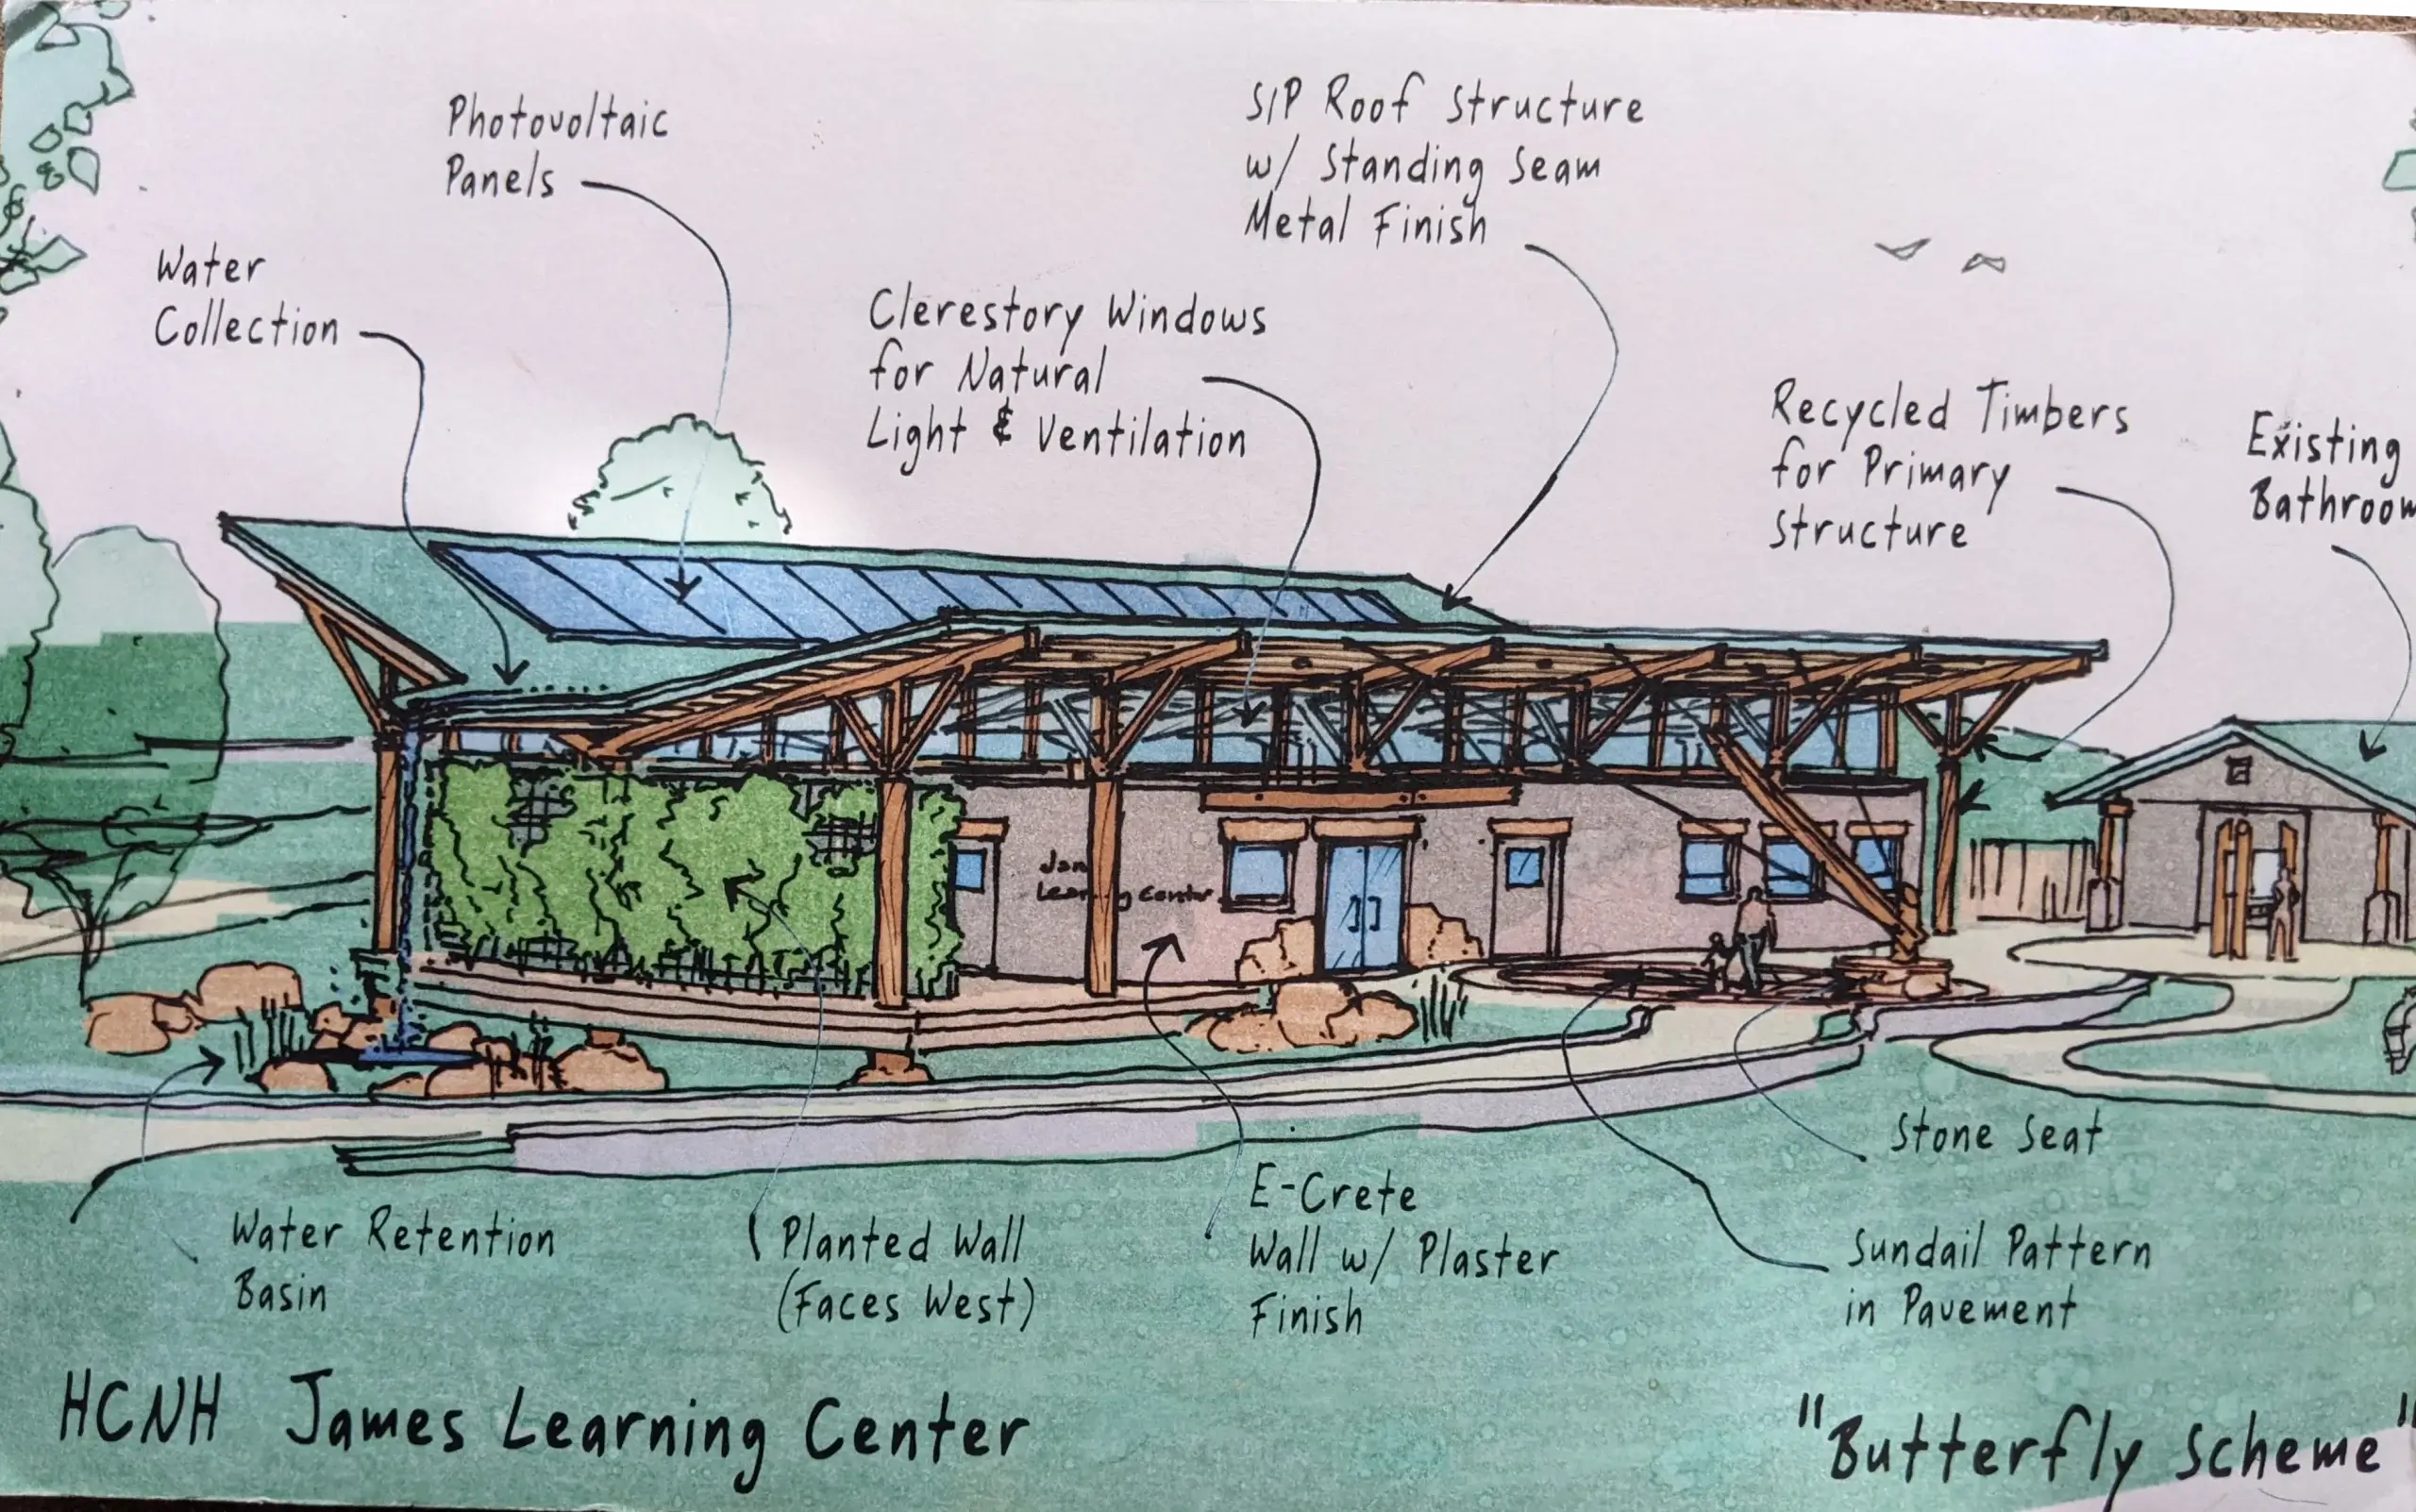 Photovoltaic
Panels
SIP Roof Structure
w/ Standing Seam
Metal Finish
Water
Collection
Clerestory Windows
for Natural
Light & Ventilation
Recycled Timbers
for Primary
Structure
Existing
Bathroom
Learning Center
Stone Seat
Water Retention
Basin
Planted Wall
(Faces West)
E-Crete
Wall w/ Plaster
Finish
Sundail Pattern
in Pavement
HCNH James Learning Center
"Butterfly Scheme"